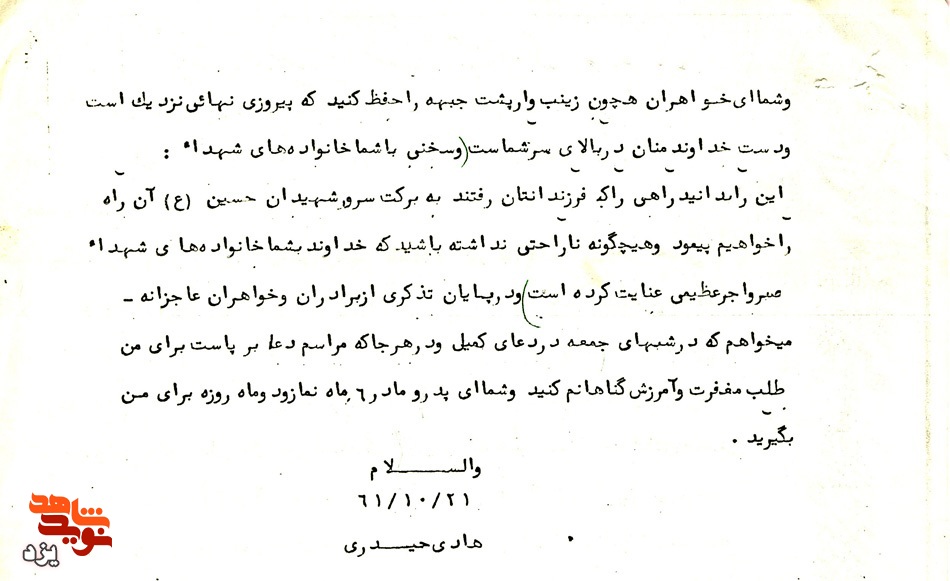 وشما ای خواهران همچون زینب وار پشت جبهه را حفظ کنید که پیروزی نهائی نزدیك است
ودست خداوند منان در بالای سر شماست (وسخنی با شما خانواده‌های شهداء :
این را بدانید راهی را که فرزندانتان رفتند به برکت سرور شهیدان حسین (ع) آن راه
را خواهیم پیمود وهیچگونه ناراحتی نداشته باشید که خداوند بشما خانواده‌های شهداء
صبر واجر عظیمی عنایت کرده است) ودر پایان تذکری از برادران وخواهران عاجزانه –
میخواهم که در شبهای جمعه در دعای کمیل ودر هر جا که مراسم دعا بر پاست برای من
طلب مغفرت وآمرزش گناهانم کنید وشما ای پدر و مادر ٦ ماه نماز ودو ماه روزه برای من
بگیرید .
والسلام
٦١/١٠/٢١
هادی حیدری
نوید شاهد
یزد